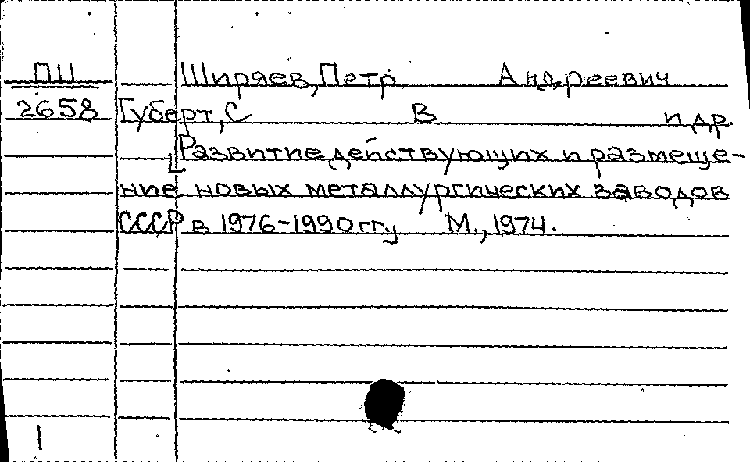 ПЦ Ширяев, Петр Андреевич
2658 Губерт, С В и др.
[Развитие действующих и размеще-
ние новых металлургических заводов
СССР в 1976-1990 гг.] М., 1974.